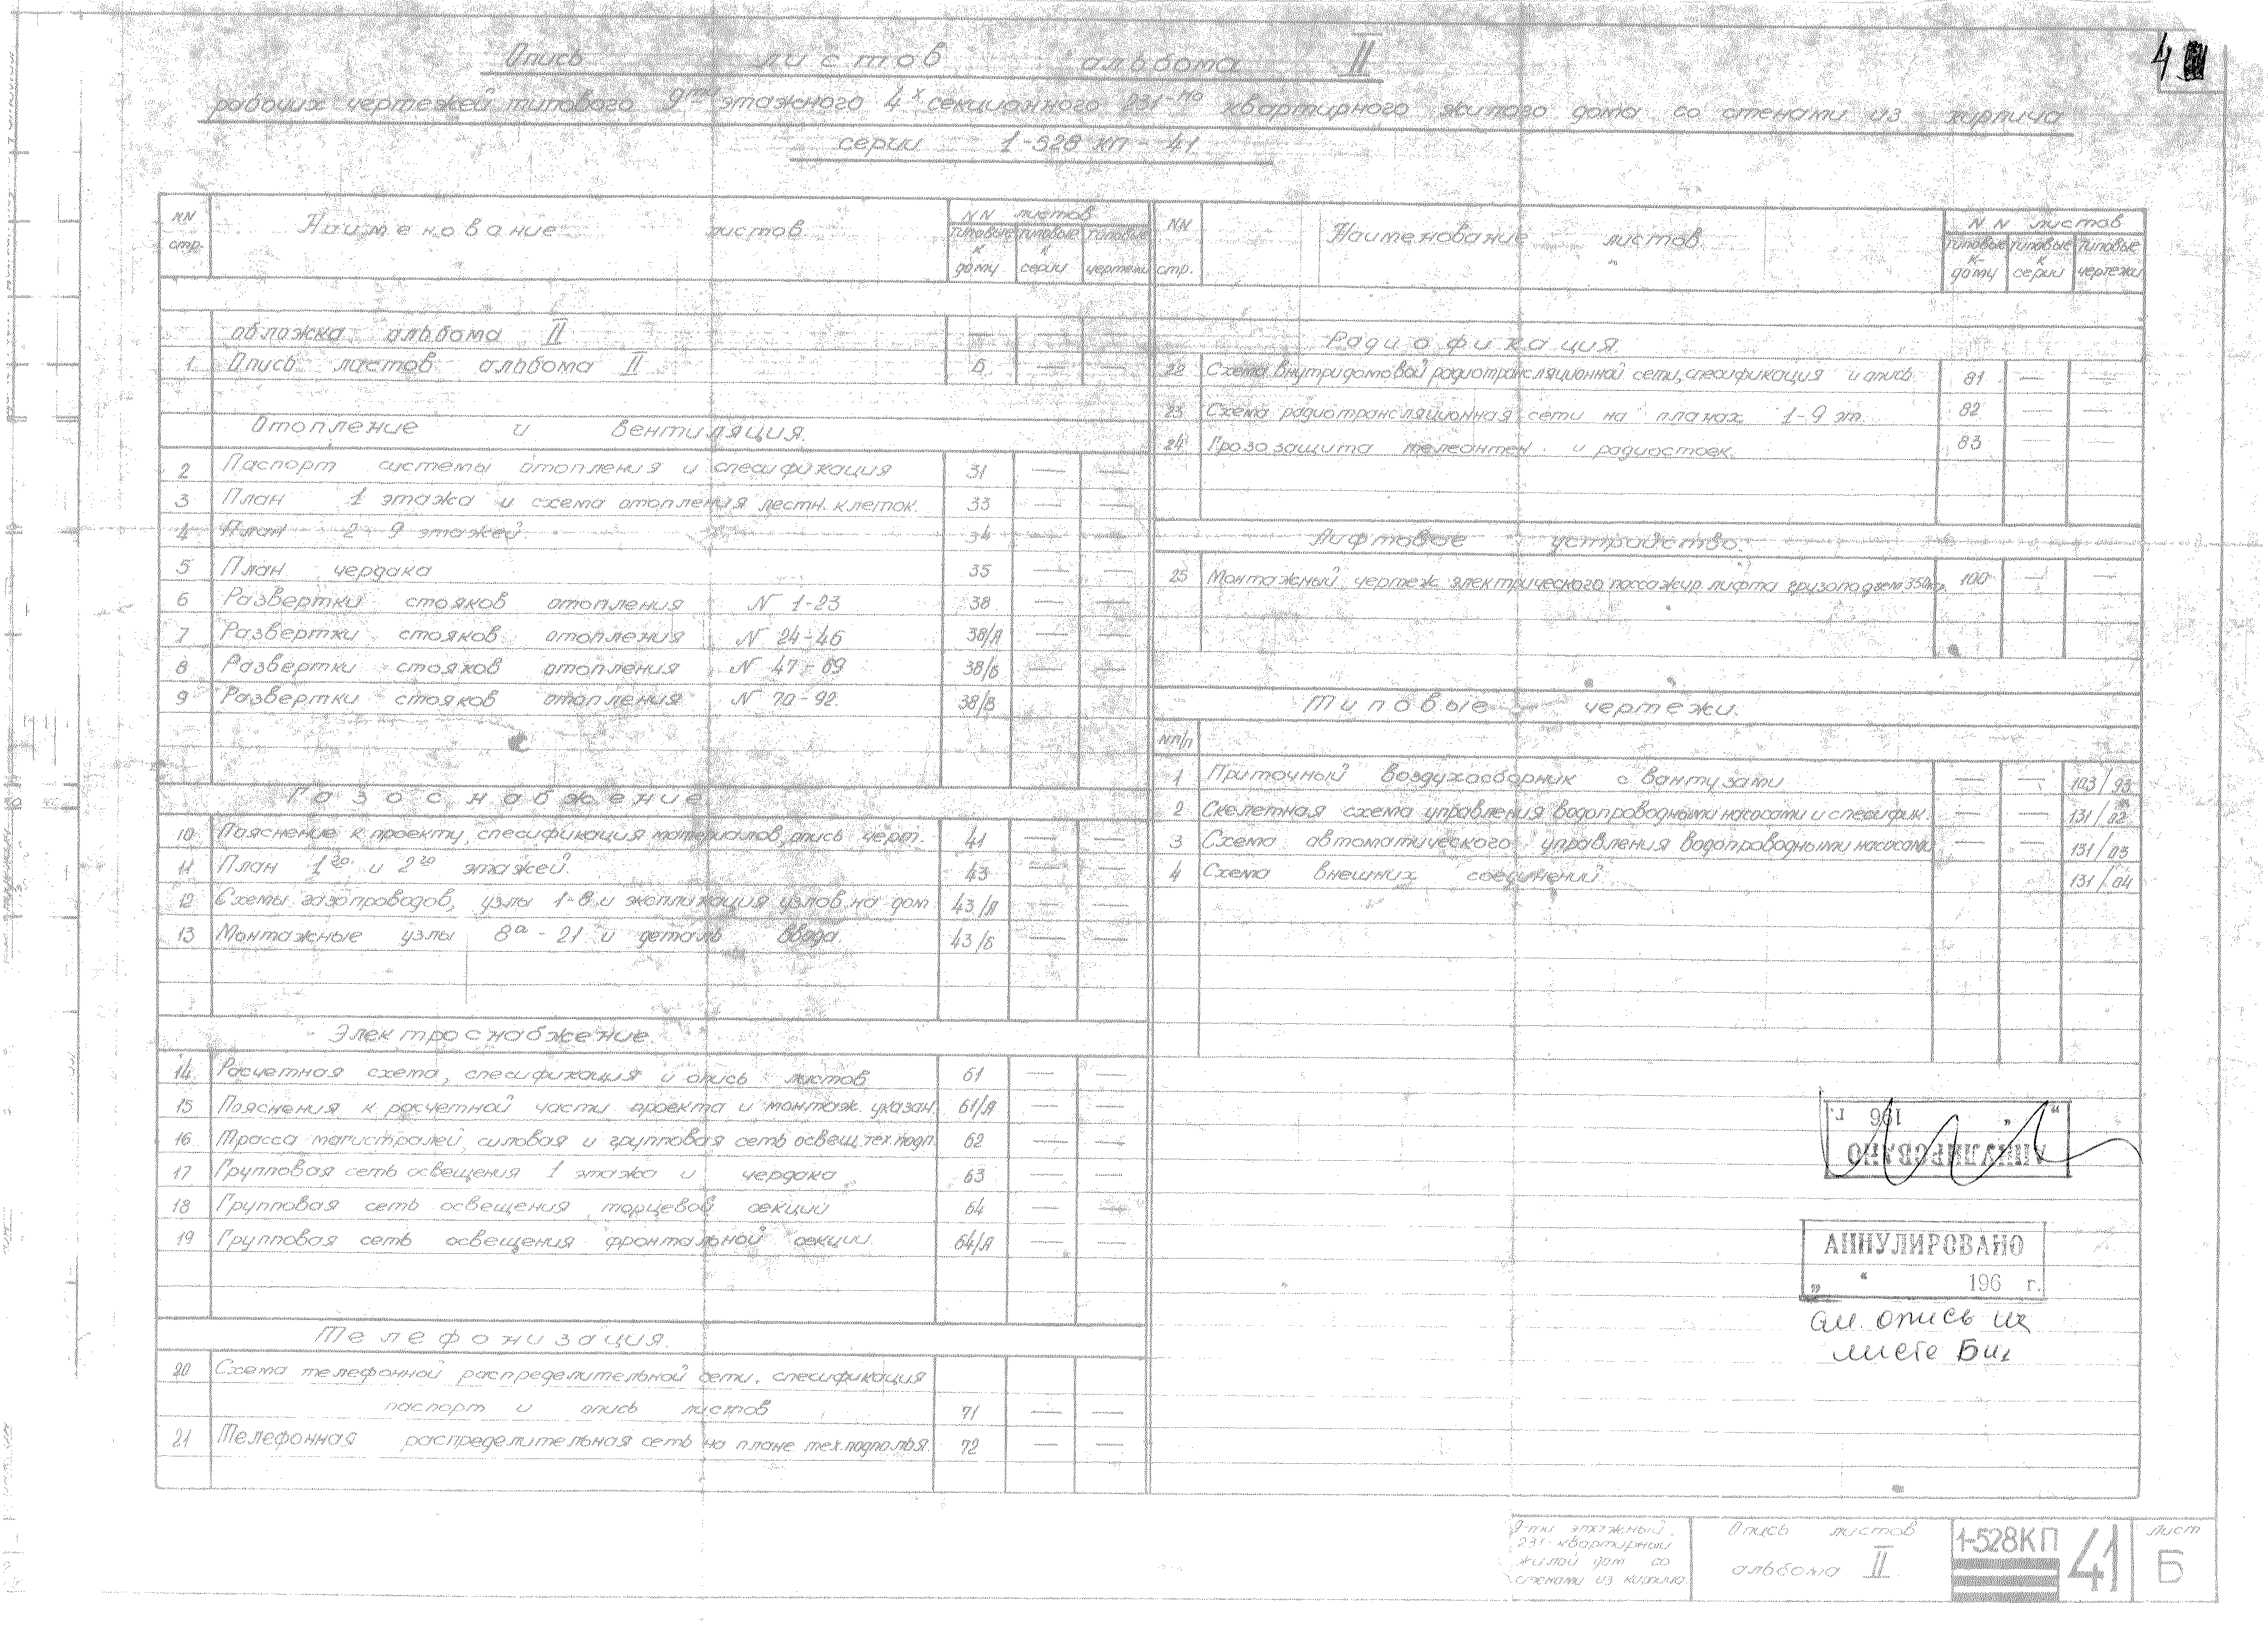 4
Опись листов альбома II
рабочих чертежей типового 9ти этажного 4х секционного 231-но квартирного жилого дома со стенами из кирпича
серии 1-528 КП - 41
NN стр. Наименование листов NN листов
типовые к дому типовые к серии типовые чертежи
обложка альбома II — — —
1 Опись листов альбома II Б — —
Отопление и вентиляция.
2 Паспорт системы отопления и спецификация 31 — —
3 План 1 этажа и схема отопления лестн. клеток. 33 — —
4 План 2-9 этажей 34 — —
5 План чердака 35 — —
6 Развертки стояков отопления N 1-23 38 — —
7 Развертки стояков отопления N 24-46 38/А — —
8 Развертки стояков отопления N 47-69 38/Б — —
9 Развертки стояков отопления N 70-92. 38/В
Газоснабжение
10 Пояснение к проекту, спецификация материалов, опись черт. 41 — —
11 План 1го и 2го этажей. 43 — —
12 Схемы газопроводов, узлы 1-8 и экспликация узлов на дом 43/А — —
13 Монтажные узлы 8а - 21 и деталь ввода. 43/Б — —
Электроснабжение
14 Расчетная схема, спецификация и опись листов 61 — —
15 Пояснения к расчетной части проекта и монтаж. указан. 61/А — —
16 Трасса магистралей, силовая и групповая сеть освещ. тех. подп. 62 — —
17 Групповая сеть освещения 1 этажа и чердака 63 — —
18 Групповая сеть освещения торцевой секции 64 — —
19 Групповая сеть освещения фронтальной секции. 64/А — —
Телефонизация.
20 Схема телефонной распределительной сети, спецификация
паспорт и опись листов 71 — —
21 Телефонная распределительная сеть на плане тех. подполья. 72 — —
NN стр. Наименование листов. NN листов
типовые к дому типовые к серии типовые чертежи
Радиофикация
22 Схема внутридомовой радиотрансляционной сети, спецификация и опись 81 — —
23 Схема радиотрансляционная сети на планах 1-9 эт. 82 — —
24 Грозозащита телеантен. и радиостоек. 83 — —
Лифтовое устройство.
25 Монтажный чертеж электрического пассажир. лифта грузоподъем 350кг. 100 — —
Типовые чертежи.
Nп/п
1 Приточный воздухосборник с вантузами — — 103/93
2 Скелетная схема управления водопроводными насосами и специфик. — — 131/02
3 Схема автоматического управления водопроводными насосами — — 131/03
4 Схема внешних соединений 131/04
АННУЛИРОВАНО
„ “ 196 г.
АННУЛИРОВАНО
„ “ 196 г.
см. опись на
листе Би1
9-ти этажный
231-квартирный
жилой дом со
стенами из кирпича
Опись листов
альбома II
1-528КП 41
Лист
Б